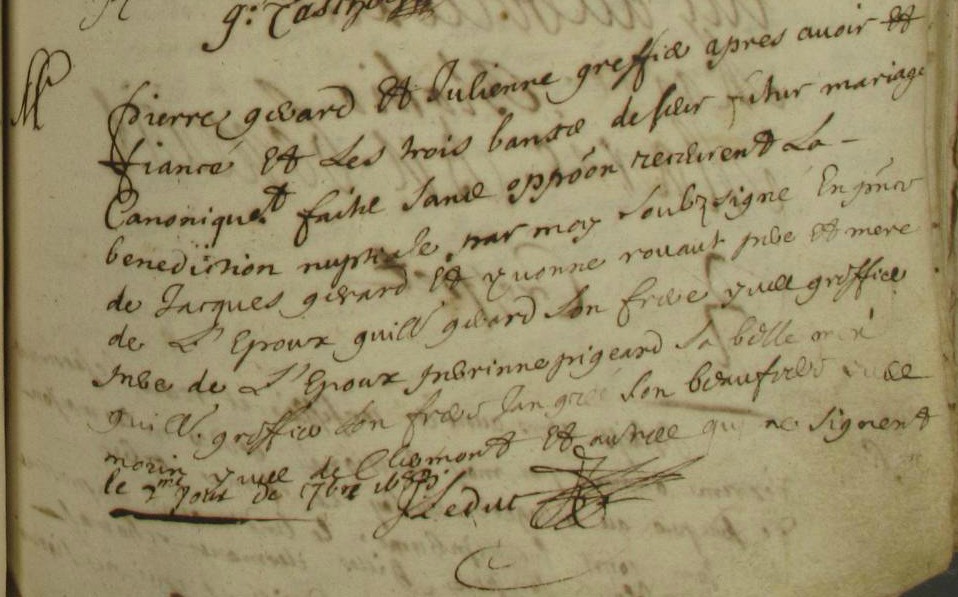 M
pierre gerard et Julienne greffier apres avoir et
fiancé et les trois banse de leur futur mariage
Canoniquet faitte sans oppoon receurent la –
benediction nuptiale par moy soubzsigné En pnce
de Jacques gerard et yvonne rouaut pere et mere
de L'Epoux guill gerard son frere yves greffier
pere de L'Epoux perrinne pigeard sa belle mere
guill. greffier son frere Jan son beaufrere yves
morin yves de Clermont et autres qui ne signent
le 7me jour de 7bre
Leduc